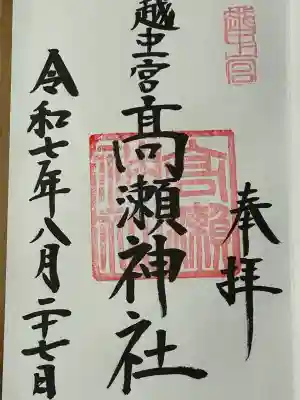 奉拝
越中宮
髙瀬神社
令和七年八月二十七日
越中一宮
高瀬神社